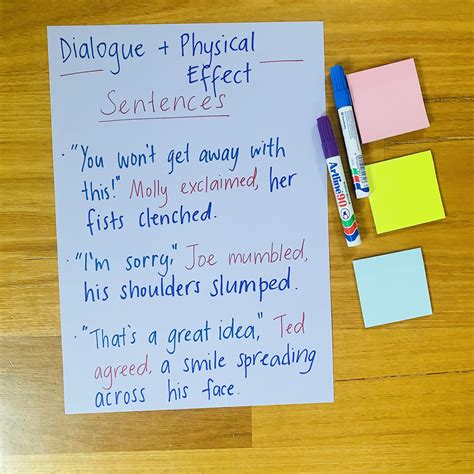 Dialogue + Physical
Effect
Sentences
· "You won't get away with
this!" Molly exclaimed, her
fists clenched.
· "I'm sorry," Joe mumbled,
his shoulders slumped.
· "That's a great idea," Ted
agreed, a smile spreading
across his face.
Artline 90